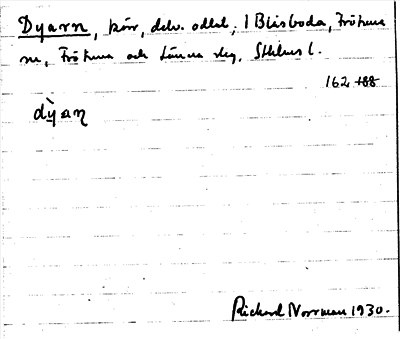 Dyarn, kärr, delv. odlat; 1 Blisboda, Frökinna
sn, Frökinna och Länna skg, Sthlms l.
162 188
dỳaꞃ
Richard Norrman 1930.